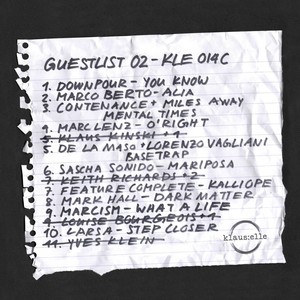 GUESTLIST 02 - KLE 014C
1. DOWNPOUR - YOU KNOW
2. MARCO BERTO - ALIA
3. CONTENANCE + MILES AWAY
MENTAL TIMES
4. MARC LENZ - O'RIGHT
5. KLAUS KINSKI + 1
5. DE LA MASO + LORENZO VAGLIANI
BASETRAP
6. SASCHA SONIDO - MARIPOSA
7. KEITH RICHARDS + 2
7. FEATURE COMPLETE - KALLIOPE
8. MARK HALL - DARK MATTER
9. MARCISM - WHAT A LIFE
LOUISE BOURGEOIS + 1
10. LARSA - STEP CLOSER
11. YVES KLEIN
klaus:elle